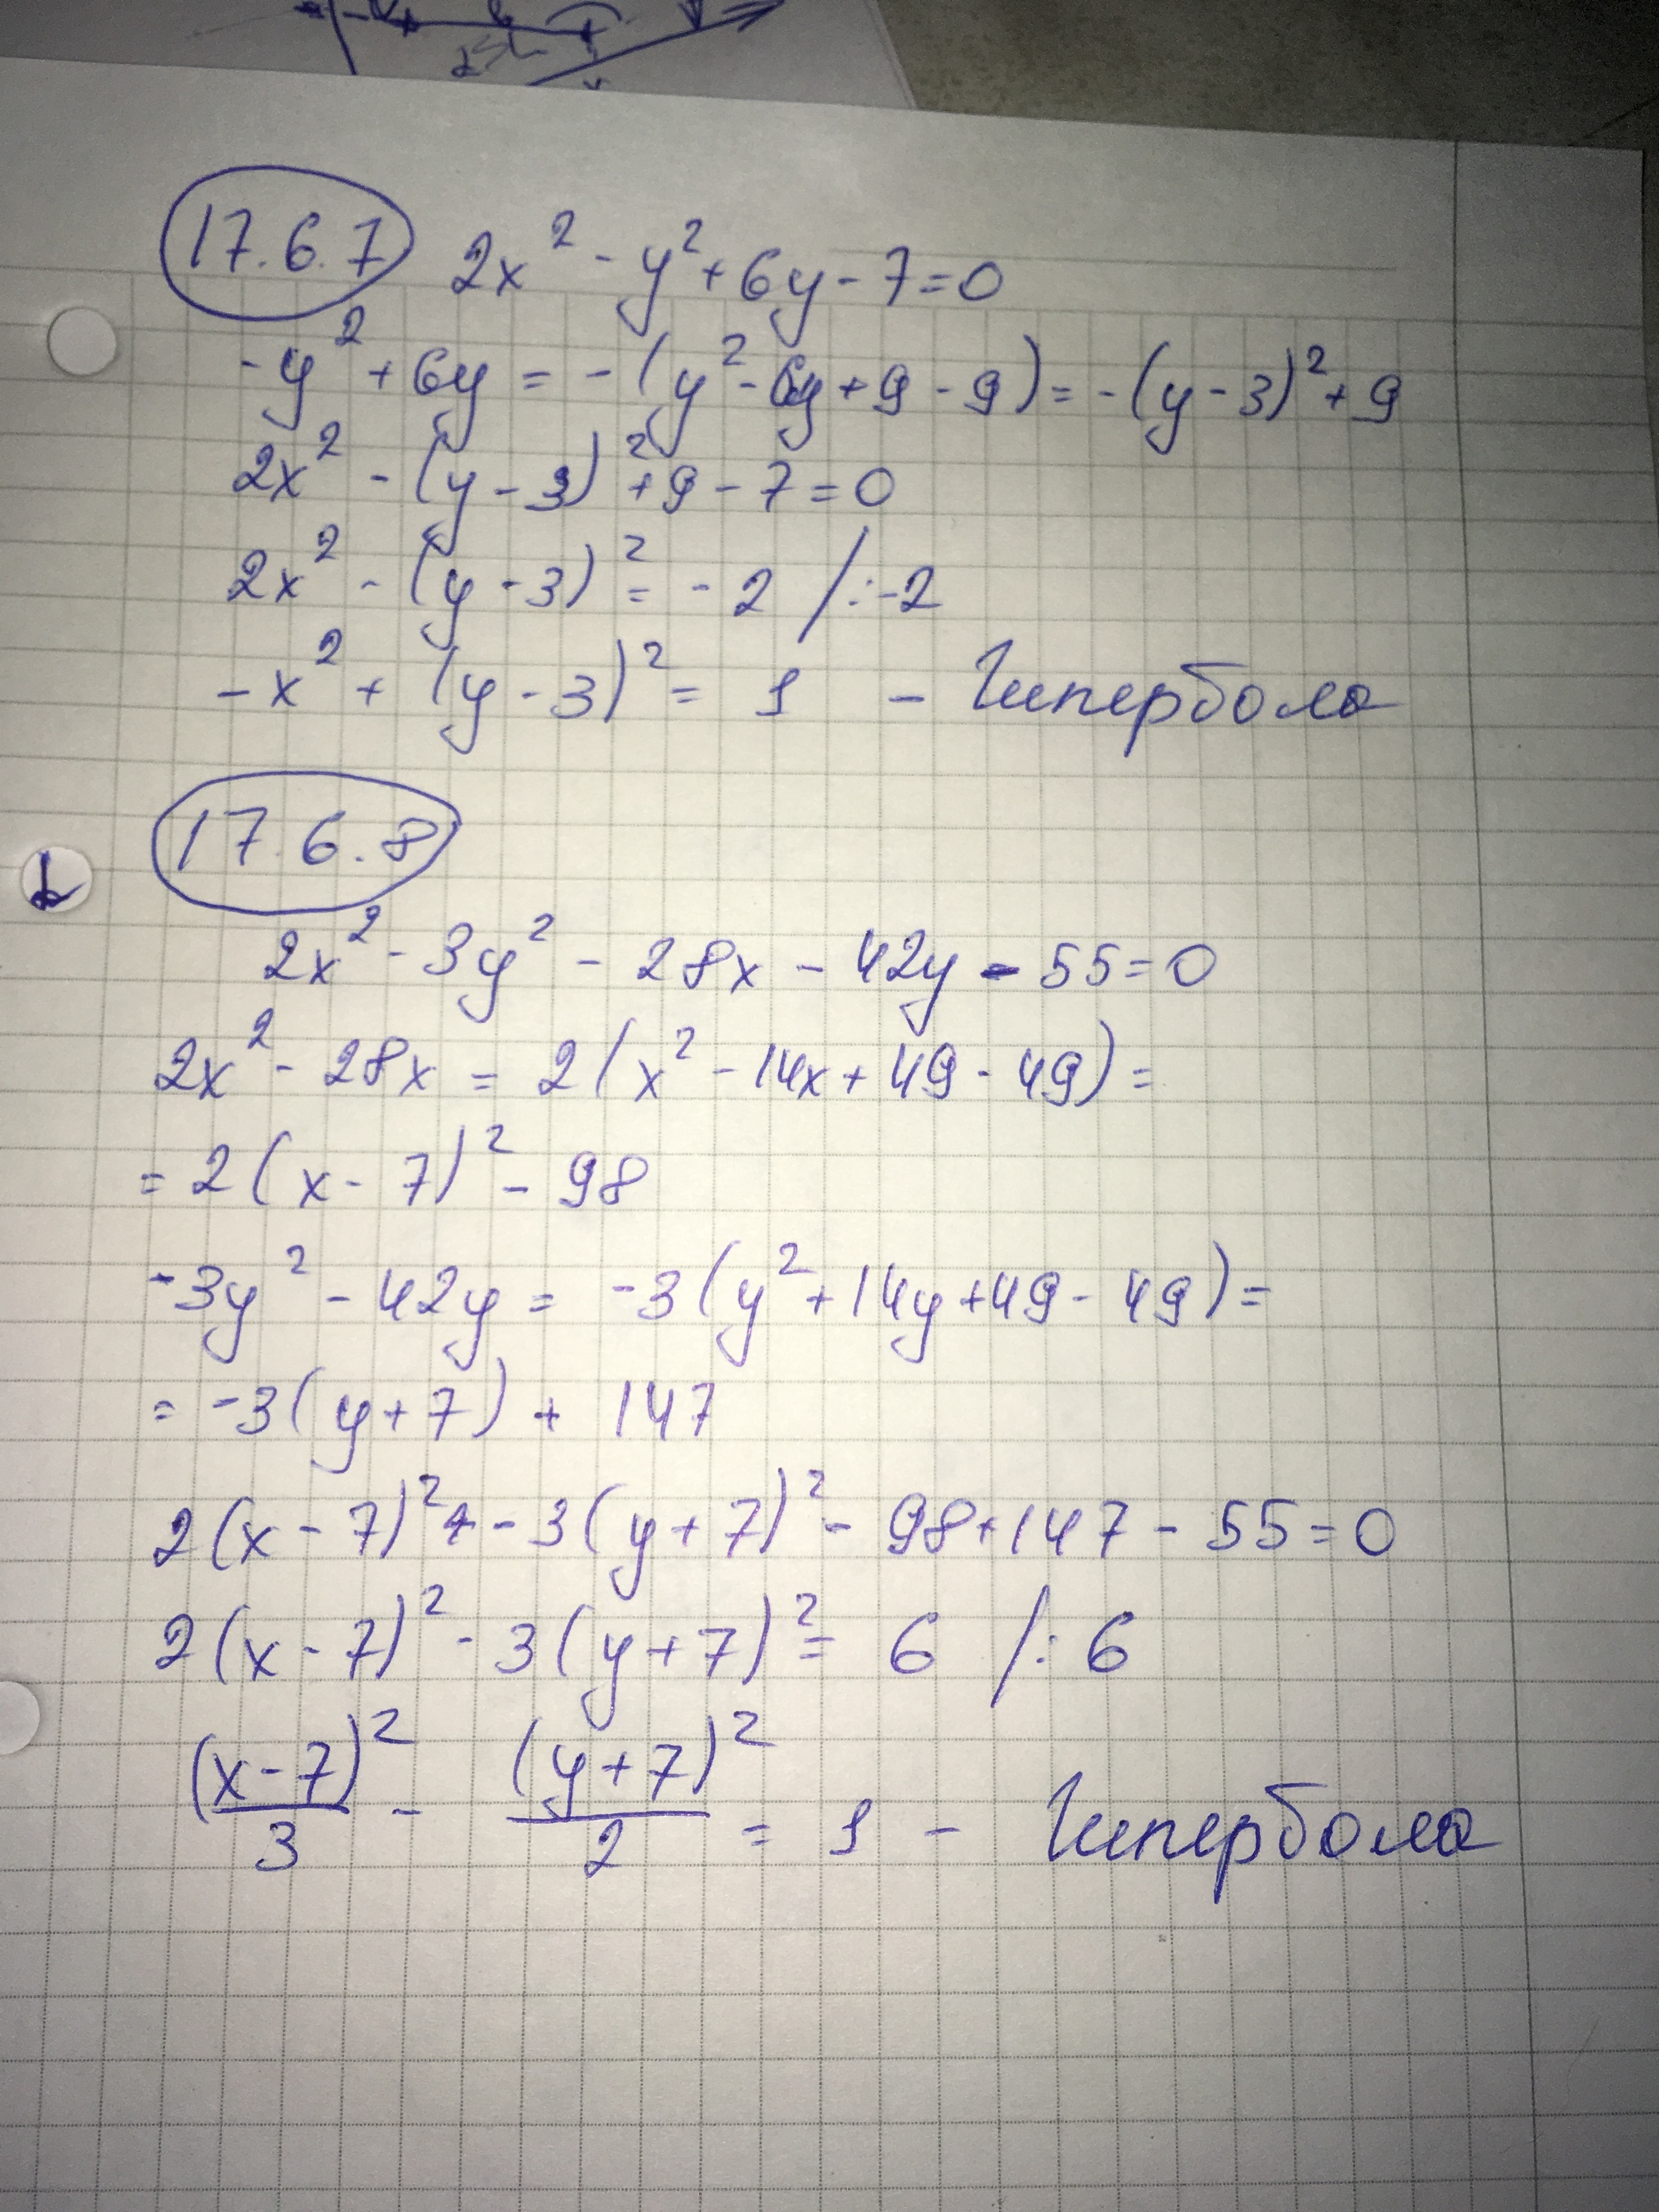 17.6.7 2x² - y² + 6y - 7 = 0
-y² + 6y = -(y² - 6y + 9 - 9) = -(y - 3)² + 9
2x² - (y - 3)² + 9 - 7 = 0
2x² - (y - 3)² = -2 /:-2
-x² + (y - 3)² = 1 - Гипербола
17.6.8
2x² - 3y² - 28x - 42y - 55 = 0
2x² - 28x = 2(x² - 14x + 49 - 49) =
= 2(x - 7)² - 98
-3y² - 42y = -3(y² + 14y + 49 - 49) =
= -3(y + 7) + 147
2(x - 7)² + - 3(y + 7)² - 98 + 147 - 55 = 0
2(x - 7)² - 3(y + 7)² = 6 /: 6
(x - 7)²/3 - (y + 7)²/2 = 1 - Гипербола